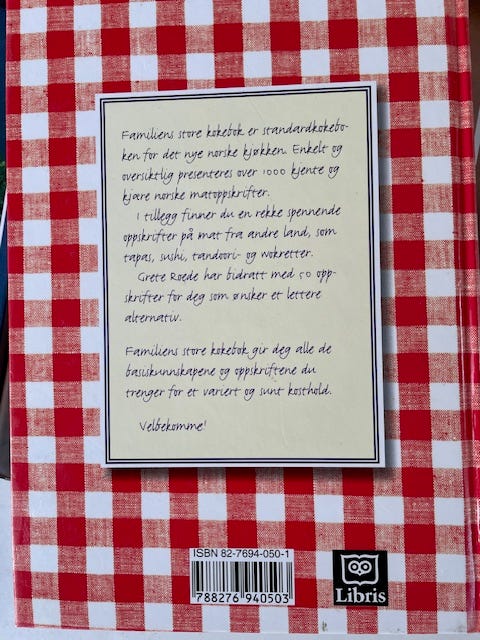 Familiens store kokebok er standardkokebo-
ken for det nye norske kjøkken. Enkelt og
oversiktlig presenteres over 1000 kjente og
kjære norske matoppskrifter.
I tillegg finner du en rekke spennende
oppskrifter på mat fra andre land, som
tapas, sushi, tandoori- og wokretter.
Grete Roede har bidratt med 50 opp-
skrifter for deg som ønsker et lettere
alternativ.
Familiens store kokebok gir deg alle de
basiskunnskapene og oppskriftene du
trenger for et variert og sunt kosthold.
Velbekomme!
ISBN 82-7694-050-1
788276 940503
Libris